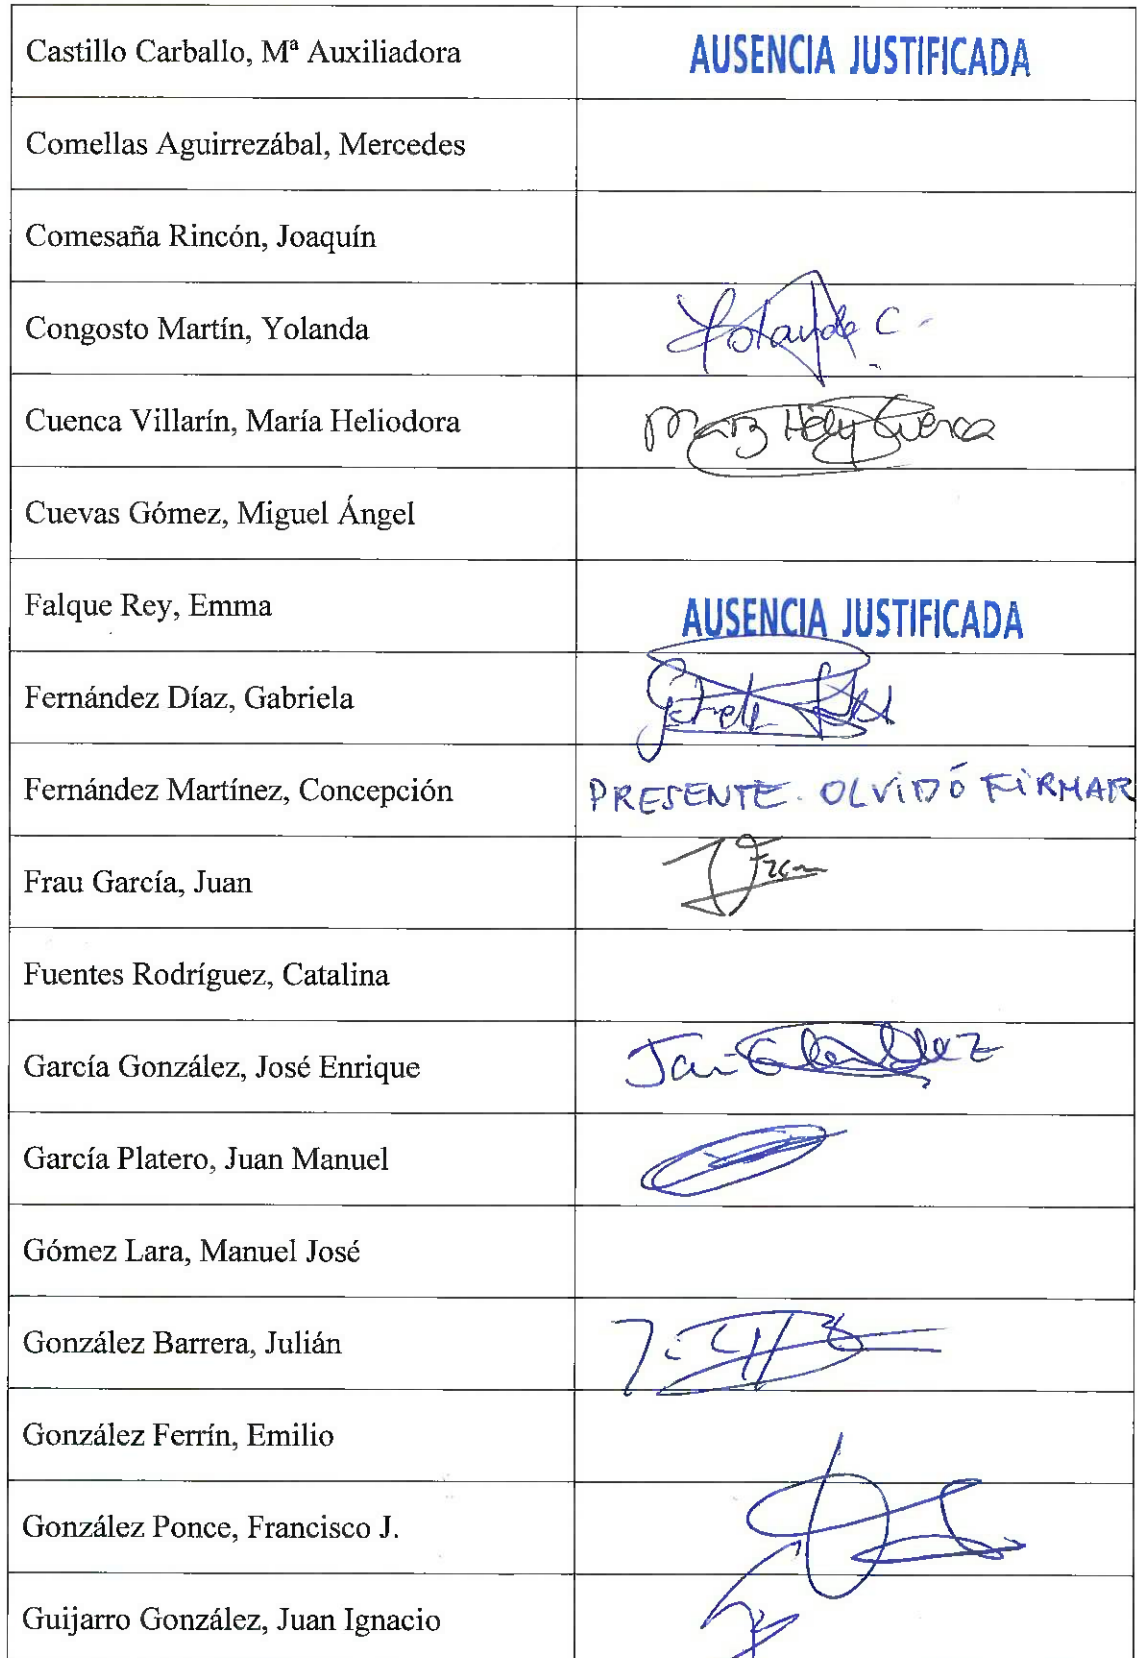 Castillo Carballo, Mª Auxiliadora AUSENCIA JUSTIFICADA
Comellas Aguirrezábal, Mercedes
Comesaña Rincón, Joaquín
Congosto Martín, Yolanda Yolanda C.
Cuenca Villarín, María Heliodora María Hely Cuenca
Cuevas Gómez, Miguel Ángel
Falque Rey, Emma AUSENCIA JUSTIFICADA
Fernández Díaz, Gabriela
Fernández Martínez, Concepción PRESENTE. OLVIDÓ FIRMAR
Frau García, Juan
Fuentes Rodríguez, Catalina
García González, José Enrique
García Platero, Juan Manuel
Gómez Lara, Manuel José
González Barrera, Julián
González Ferrín, Emilio
González Ponce, Francisco J.
Guijarro González, Juan Ignacio